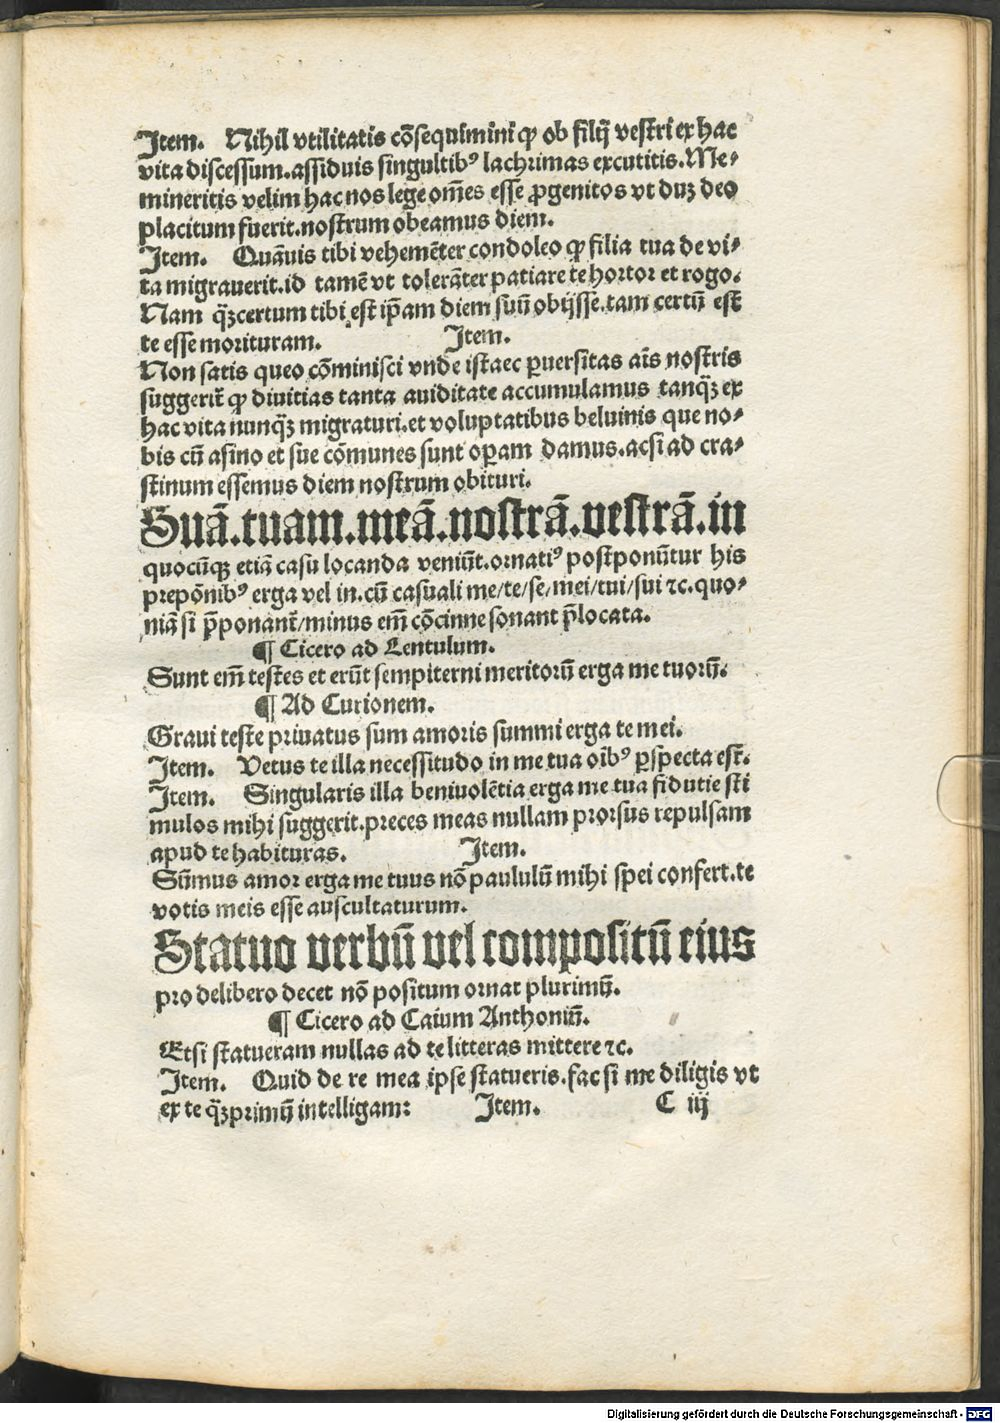 Item. Nihil vtilitatis cõsequimini ꝙ ob filij vestri ex hac
vita discessum.assiduis singultibꝰ lachrimas excutitis.Me⸗
mineritis velim hac nos lege om̃es esse ꝓgenitos vt duʒ deo
placitum fuerit.nostrum obeamus diem.
Item. Quãuis tibi vehemẽter condoleo ꝙ filia tua de vi⸗
ta migrauerit.id tamẽ vt tolerãter patiare te hortor et rogo.
Nam q̃ʒcertum tibi est ip̃am diem suũ obijsse.tam certũ est
te esse morituram. Item.
Non satis queo cõminisci vnde istaec ꝑuersitas aĩs nostris
suggerit̃ ꝙ diuitias tanta auiditate accumulamus tanq̃ʒ ex
hac vita nunq̃ʒ migraturi.et voluptatibus beluinis que no⸗
bis cũ asino et sue cõmunes sunt oꝑam damus.acsi ad cra⸗
stinum essemus diem nostrum obituri.
Suã.tuam.meã.nostrã.vestrã.in
quocũqʒ etiã casu locanda veniũt.ornatiꝰ postponũtur his
prepõnibꝰ erga vel in.cũ casuali me/te/se/mei/tui/sui ⁊c.quo⸗
niã si p̃ponant̃/minus em̃ cõcinne sonant p̃locata.
¶ Cicero ad Lentulum.
Sunt em̃ testes et erũt sempiterni meritorũ erga me tuorũ.
¶ Ad Curionem.
Graui teste priuatus sum amoris summi erga te mei.
Item. Vetus te illa necessitudo in me tua oibꝰ ꝑspecta est.
Item. Singularis illa beniuolẽtia erga me tua fidutie sti
mulos mihi suggerit.preces meas nullam prorsus repulsam
apud te habituras. Item.
Sũmus amor erga me tuus nõ paululũ mihi spei confert.te
votis meis esse auscultaturum.
Statuo verbũ vel compositũ eius
pro delibero decet nõ positum ornat plurimũ.
¶ Cicero ad Caium Anthoniũ.
Etsi statueram nullas ad te litteras mittere ⁊c.
Item. Quid de re mea ipse statueris.fac si me diligis vt
ex te q̃ʒprimũ intelligam: Item. C iij
Digitalisierung gefördert durch die Deutsche Forschungsgemeinschaft - DFG